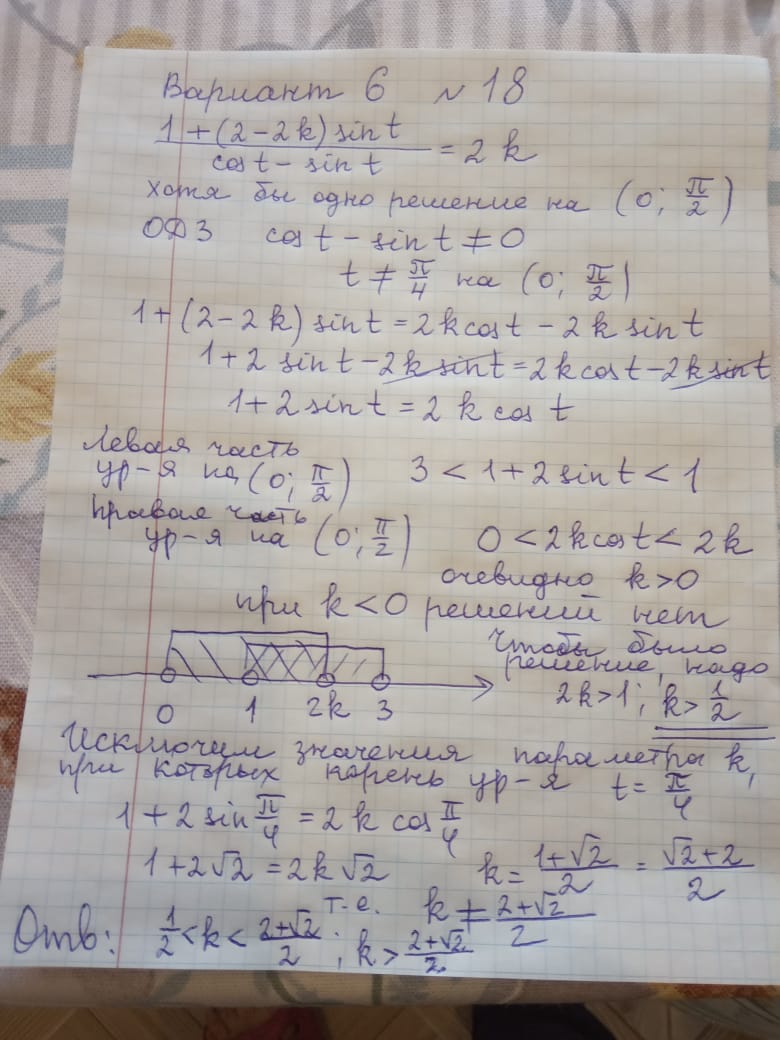 Вариант 6 №18
1+(2-2k)sin t / cos t - sin t = 2k
хотя бы одно решение на (0; π/2)
ОДЗ cos t - sin t ≠ 0
t ≠ π/4 на (0; π/2)
1+(2-2k) sin t = 2k cos t - 2k sin t
1+2 sin t - 2k sin t = 2k cos t - 2k sin t
1+2 sin t = 2k cos t
Левая часть
ур-я на (0; π/2) 3 < 1+2 sin t < 1
Правая часть
ур-я на (0; π/2) 0 < 2k cos t < 2k
очевидно k>0
при k<0 решений нет
Чтобы было
решение, надо
2k>1; k>1/2
0 1 2k 3
Исключим значения параметра k,
при которых корень ур-я t = π/4
1+2 sin π/4 = 2k cos π/4
1+2√2 = 2k√2 k = 1+√2 / 2 = √2+2 / 2
т.е. k ≠ 2+√2 / 2
Отв: 1/2 < k < 2+√2 / 2; k > 2+√2 / 2